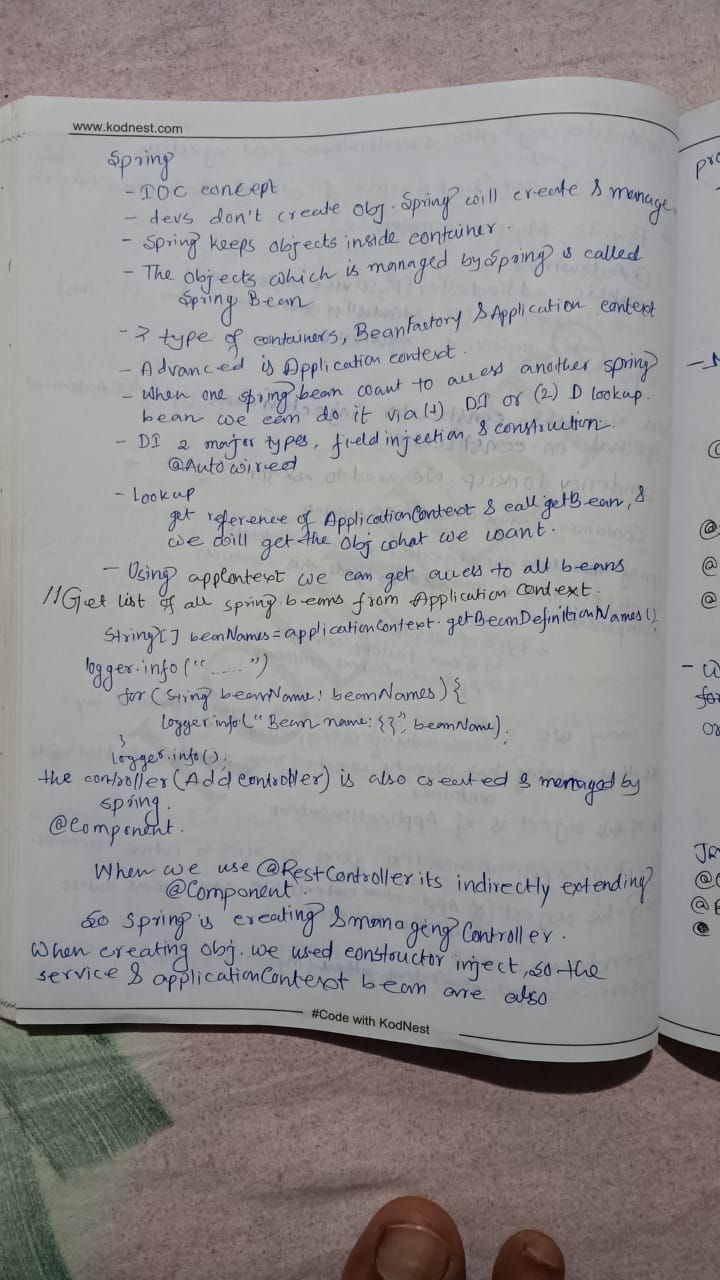 www.kodnest.com
Spring
- IOC concept
- devs don't create obj. Spring will create & manage.
- Spring keeps objects inside container.
- The objects which is managed by Spring is called
Spring Bean
- 2 type of containers, Beanfactory & Application context
- Advanced is Application context.
- When one spring bean want to access another spring
bean we can do it via (1) DI or (2) D lookup.
- DI 2 major types, field injection & construction.
@Autowired
- Lookup
get reference of ApplicationContext & call getBean, &
we will get the obj what we want.
- Using appContext we can get access to all beans
//Get list of all spring beans from Application Context.
String[] beanNames = applicationContext.getBeanDefinitionNames();
logger.info("......")
for (String beanName: beanNames) {
logger.info("Bean name: {}", beanName);
}
logger.info();
the controller (Add controller) is also created & managed by
spring.
@Component.
When we use @RestController its indirectly extending
@Component.
So spring is creating & managing Controller.
When creating obj. we used constuctor inject, so the
service & applicationContext bean are also
#Code with KodNest